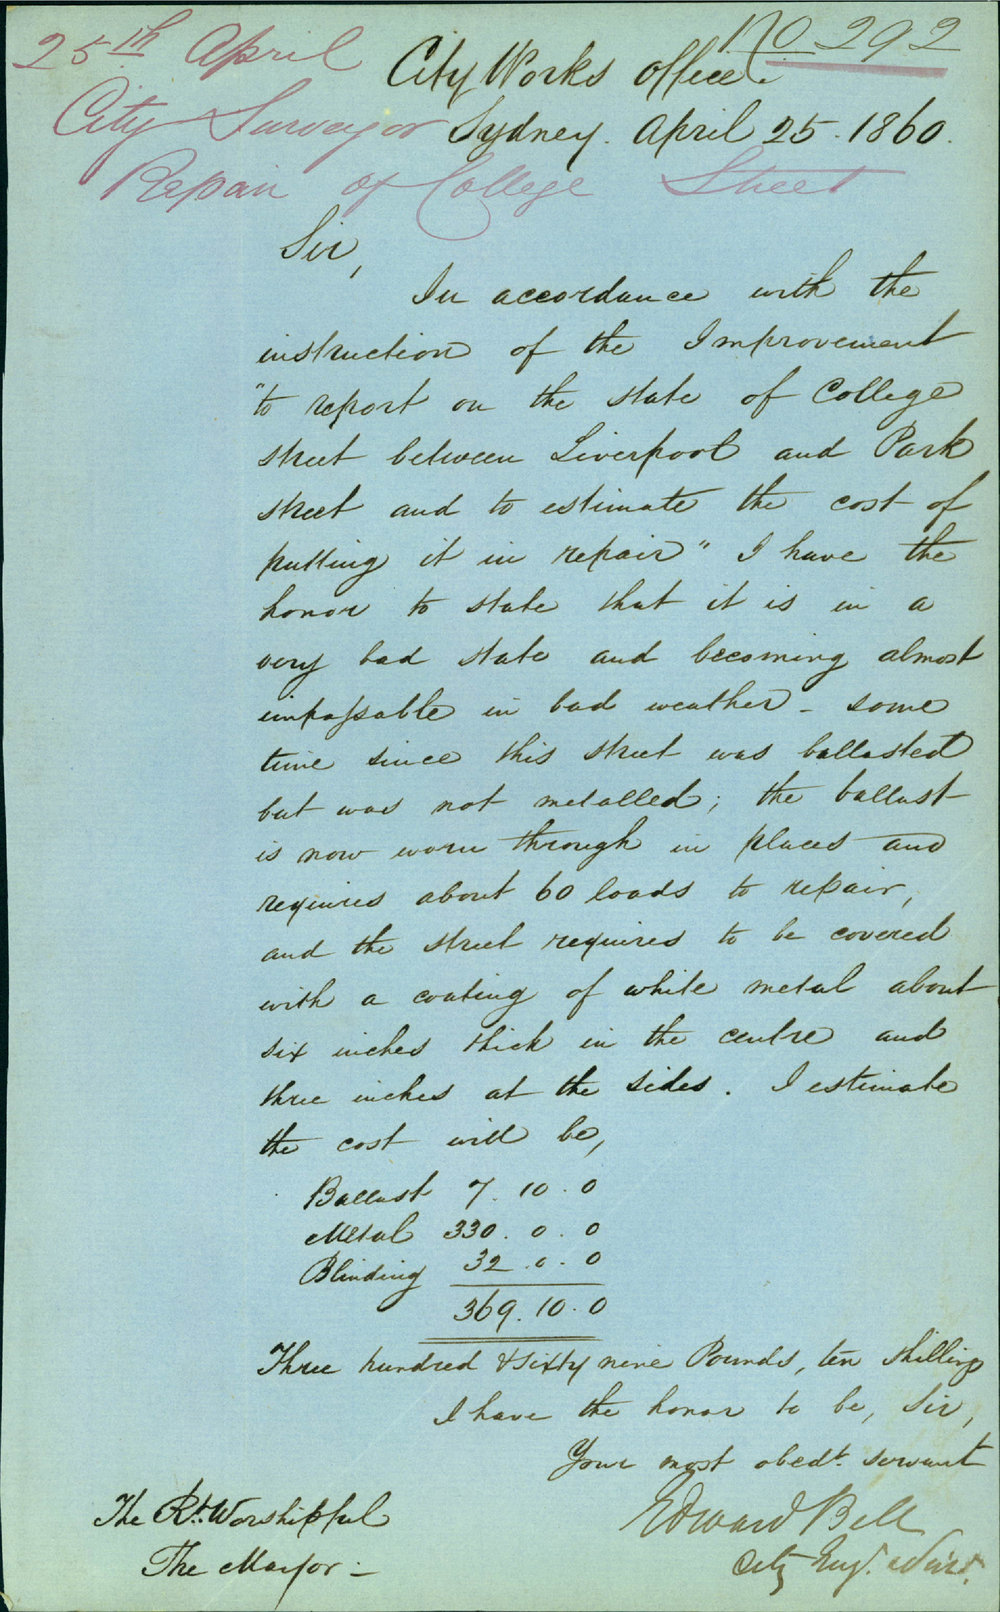 No 292
25th April
City Works Office.
City Surveyor
Sydney. April 25. 1860.
Repair of College Street
Sir,
In accordance with the
instruction of the Improvement
"to report on the state of College
street between Liverpool and Park
street and to estimate the cost of
putting it in repair" I have the
honor to state that it is in a
very bad state and becoming almost
impassable in bad weather - some
time since this street was ballasted
but was not metalled; the ballast
is now worn through in places and
requires about 60 loads to repair,
and the street requires to be covered
with a coating of white metal about
six inches thick in the centre and
three inches at the sides. I estimate
the cost will be,
Ballast 7. 10. 0
Metal 330. 0. 0
Blinding 32. 0. 0
369. 10. 0
Three hundred & sixty nine Pounds, ten shillings
I have the honor to be, Sir,
Your most obedt. servant
Edward Bell
City Engr.
The Rt. Worshipful
The Mayor -